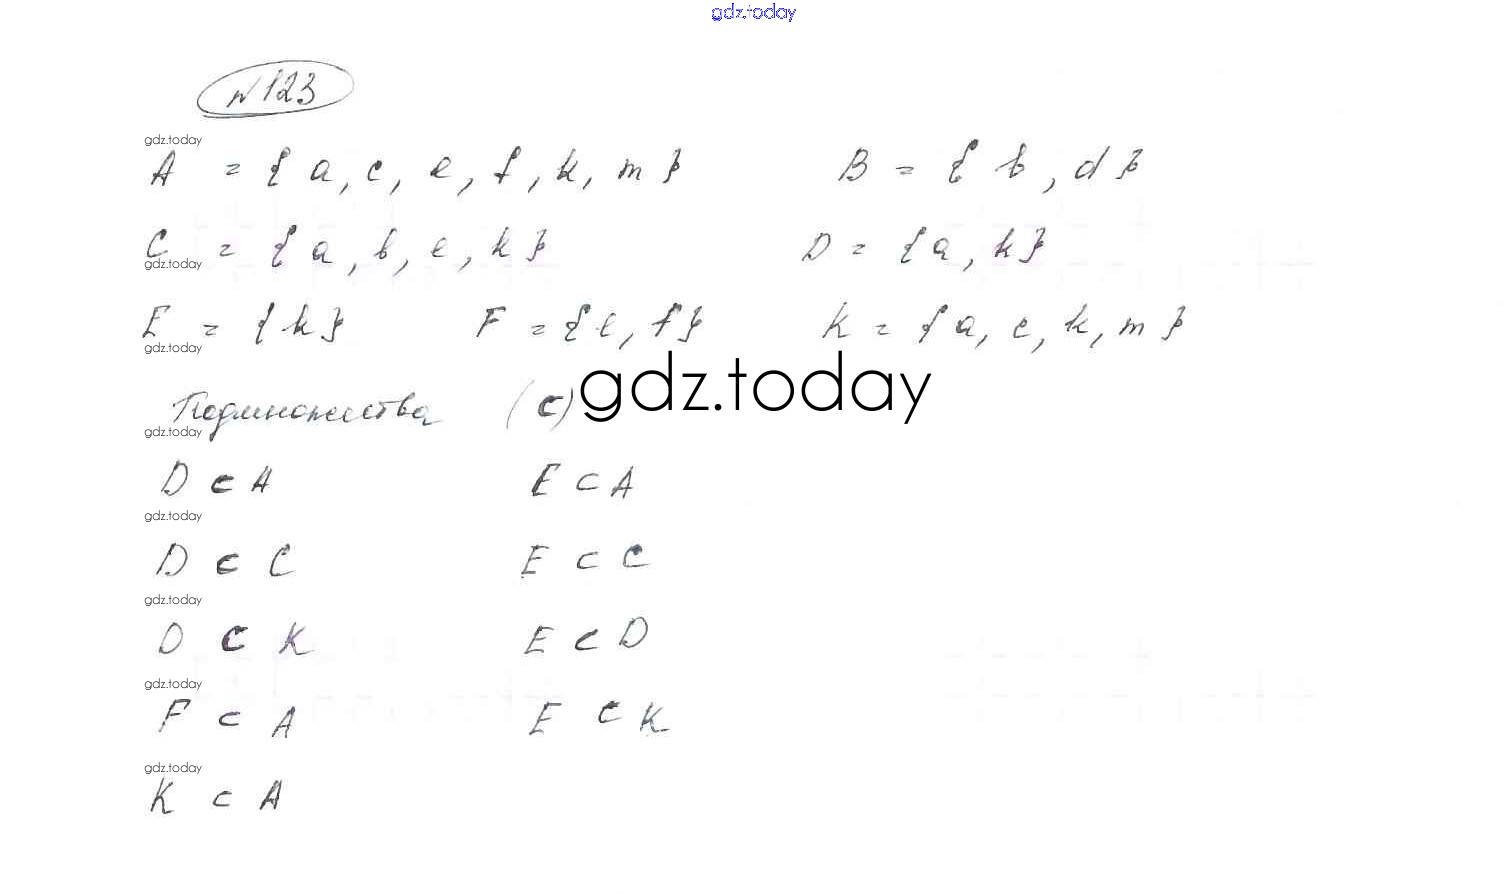 gdz.today
№123
gdz.today
A = { a, c, e, f, k, m } B = { b, d }
C = { a, b, e, k } D = { a, k }
gdz.today
E = { k } F = { e, f } K = { a, c, k, m }
gdz.today
gdz.today
Подмножества (⊂)
gdz.today
D ⊂ A E ⊂ A
gdz.today
D ⊂ C E ⊂ C
gdz.today
D ⊂ K E ⊂ D
gdz.today
F ⊂ A E ⊂ K
gdz.today
K ⊂ A